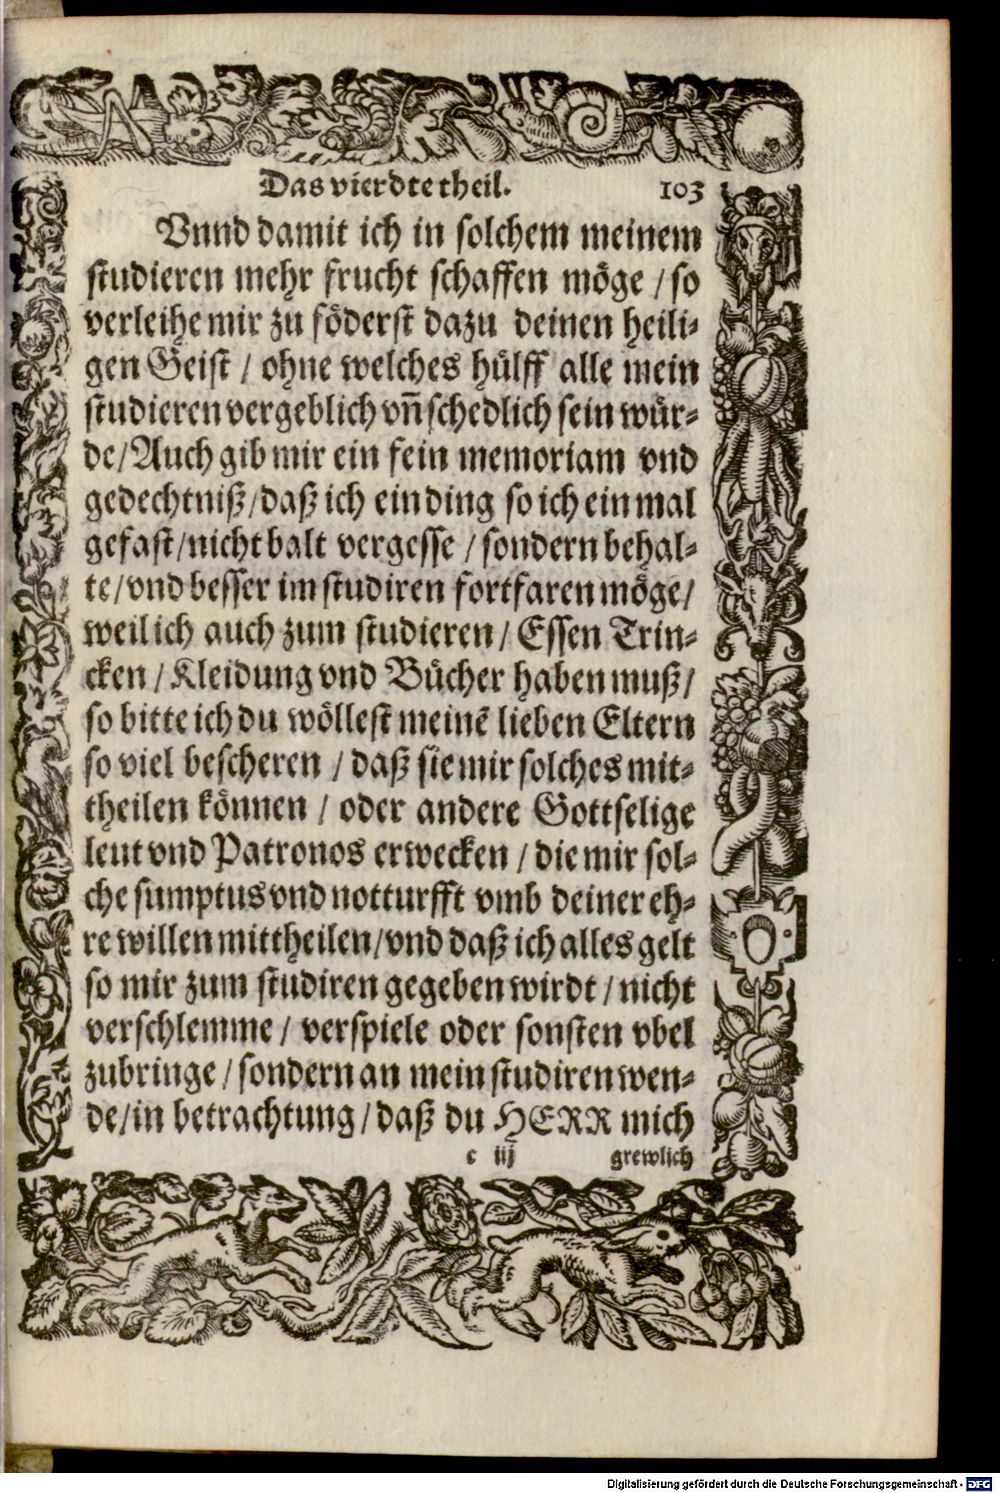 Das vierdte theil. 103
Vnnd damit ich in solchem meinem
studieren mehr frucht schaffen möge / so
verleihe mir zu föderst dazu deinen heili-
gen Geist / ohne welches hülff alle mein
studieren vergeblich vn̄ schedlich sein wür-
de / Auch gib mir ein fein memoriam vnd
gedechtniß / daß ich ein ding so ich ein mal
gefast / nicht balt vergesse / sondern behal-
te / vnd besser im studiren fortfaren möge /
weil ich auch zum studieren / Essen Trin-
cken / Kleidung vnd Bücher haben muß /
so bitte ich du wöllest meinē lieben Eltern
so viel bescheren / daß sie mir solches mit-
theilen können / oder andere Gottselige
leut vnd Patronos erwecken / die mir sol-
che sumptus vnd notturfft vmb deiner eh-
re willen mittheilen / vnd daß ich alles gelt
so mir zum studiren gegeben wirdt / nicht
verschlemme / verspiele oder sonsten vbel
zubringe / sondern an mein studiren wen-
de / in betrachtung / daß du HERR mich
c iij grewlich
Digitalisierung gefördert durch die Deutsche Forschungsgemeinschaft - DFG